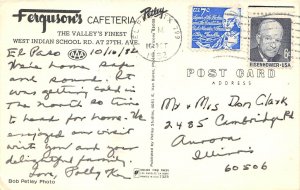 Ferguson's CAFETERIA
THE VALLEY'S FINEST
WEST INDIAN SCHOOL RD. AT 27TH AVE.
AAA
El Paso 10/10/82
We're home safe
and sound. It
was getting cold in
the North so time
to head for home. We
enjoyed our visit
with you and your
delightful family.
Love, Polly Ken
Bob Petley Photo
Petley
U.S. 7c
EISENHOWER·USA
8c
POST CARD
ADDRESS
Mr & Mrs Don Clark
2485 Cambridge Rd
Aurora
Illinois
60506